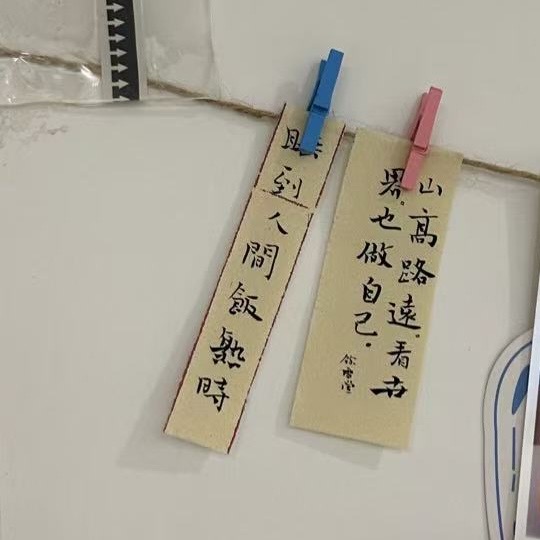 山高路遠。看世
界。也做自己。
睡到人間飯熟時